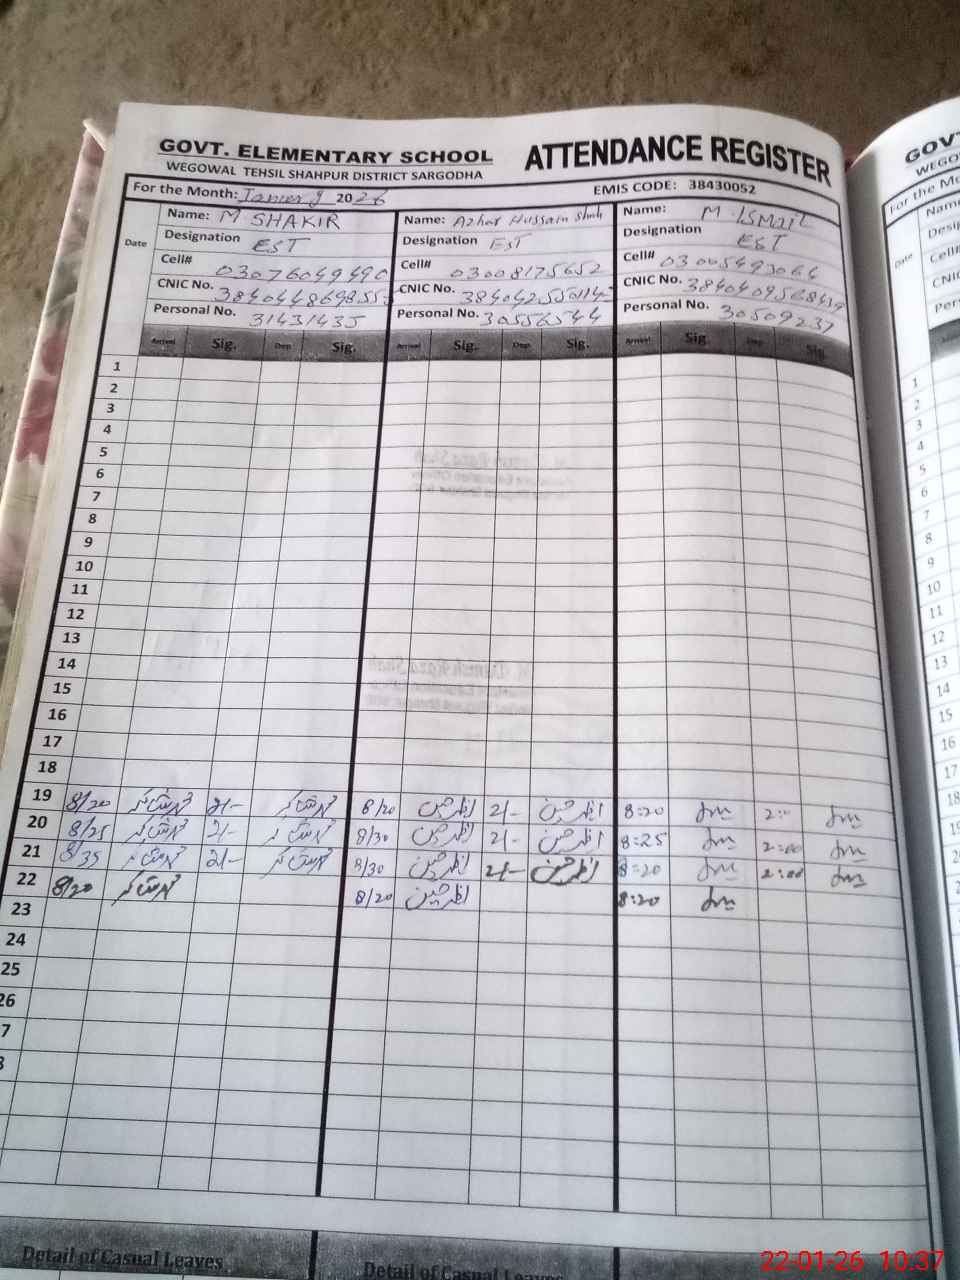 GOVT. ELEMENTARY SCHOOL
WEGOWAL TEHSIL SHAHPUR DISTRICT SARGODHA
ATTENDANCE REGISTER
For the Month: 2026 EMIS CODE: 38430052
Date
Name: M SHAKIR Name: Azhar Hussain Shah Name: M. ISMAIL
Designation EST Designation EST Designation EST
Cell# 03076049490 Cell# 03008175652 Cell# 03005493064
CNIC No. CNIC No. CNIC No.
Personal No. 31431435 Personal No. 30556544 Personal No. 30509237
Arrival Sig. Dep. Sig. Arrival Sig. Dep. Sig. Arrival Sig. Dep. Sig.
1
2
3
4
5
6
7
8
9
10
11
12
13
14
15
16
17
18
19 8/20 2/- 8/20 اظہر حسین 2/- اظہر حسین 8:20 2:
20 8/25 2/- 8/30 اظہر حسین 2/- اظہر حسین 8:25 2:00
21 8/35 2/- 8/30 اظہر حسین 2/- اظہر حسین 8:20 2:00
22 8/20 8/20 اظہر حسین 8:20
23
24
25
26
7
8
Detail of Casual Leaves Detail of Casual Leaves
GOVT
WEGOW
For the Mo
Date
Name
Desig
Cell#
CNIC
Per
1
2
3
4
5
6
7
8
9
10
11
12
13
14
15
16
17
18
22-01-26 10:37